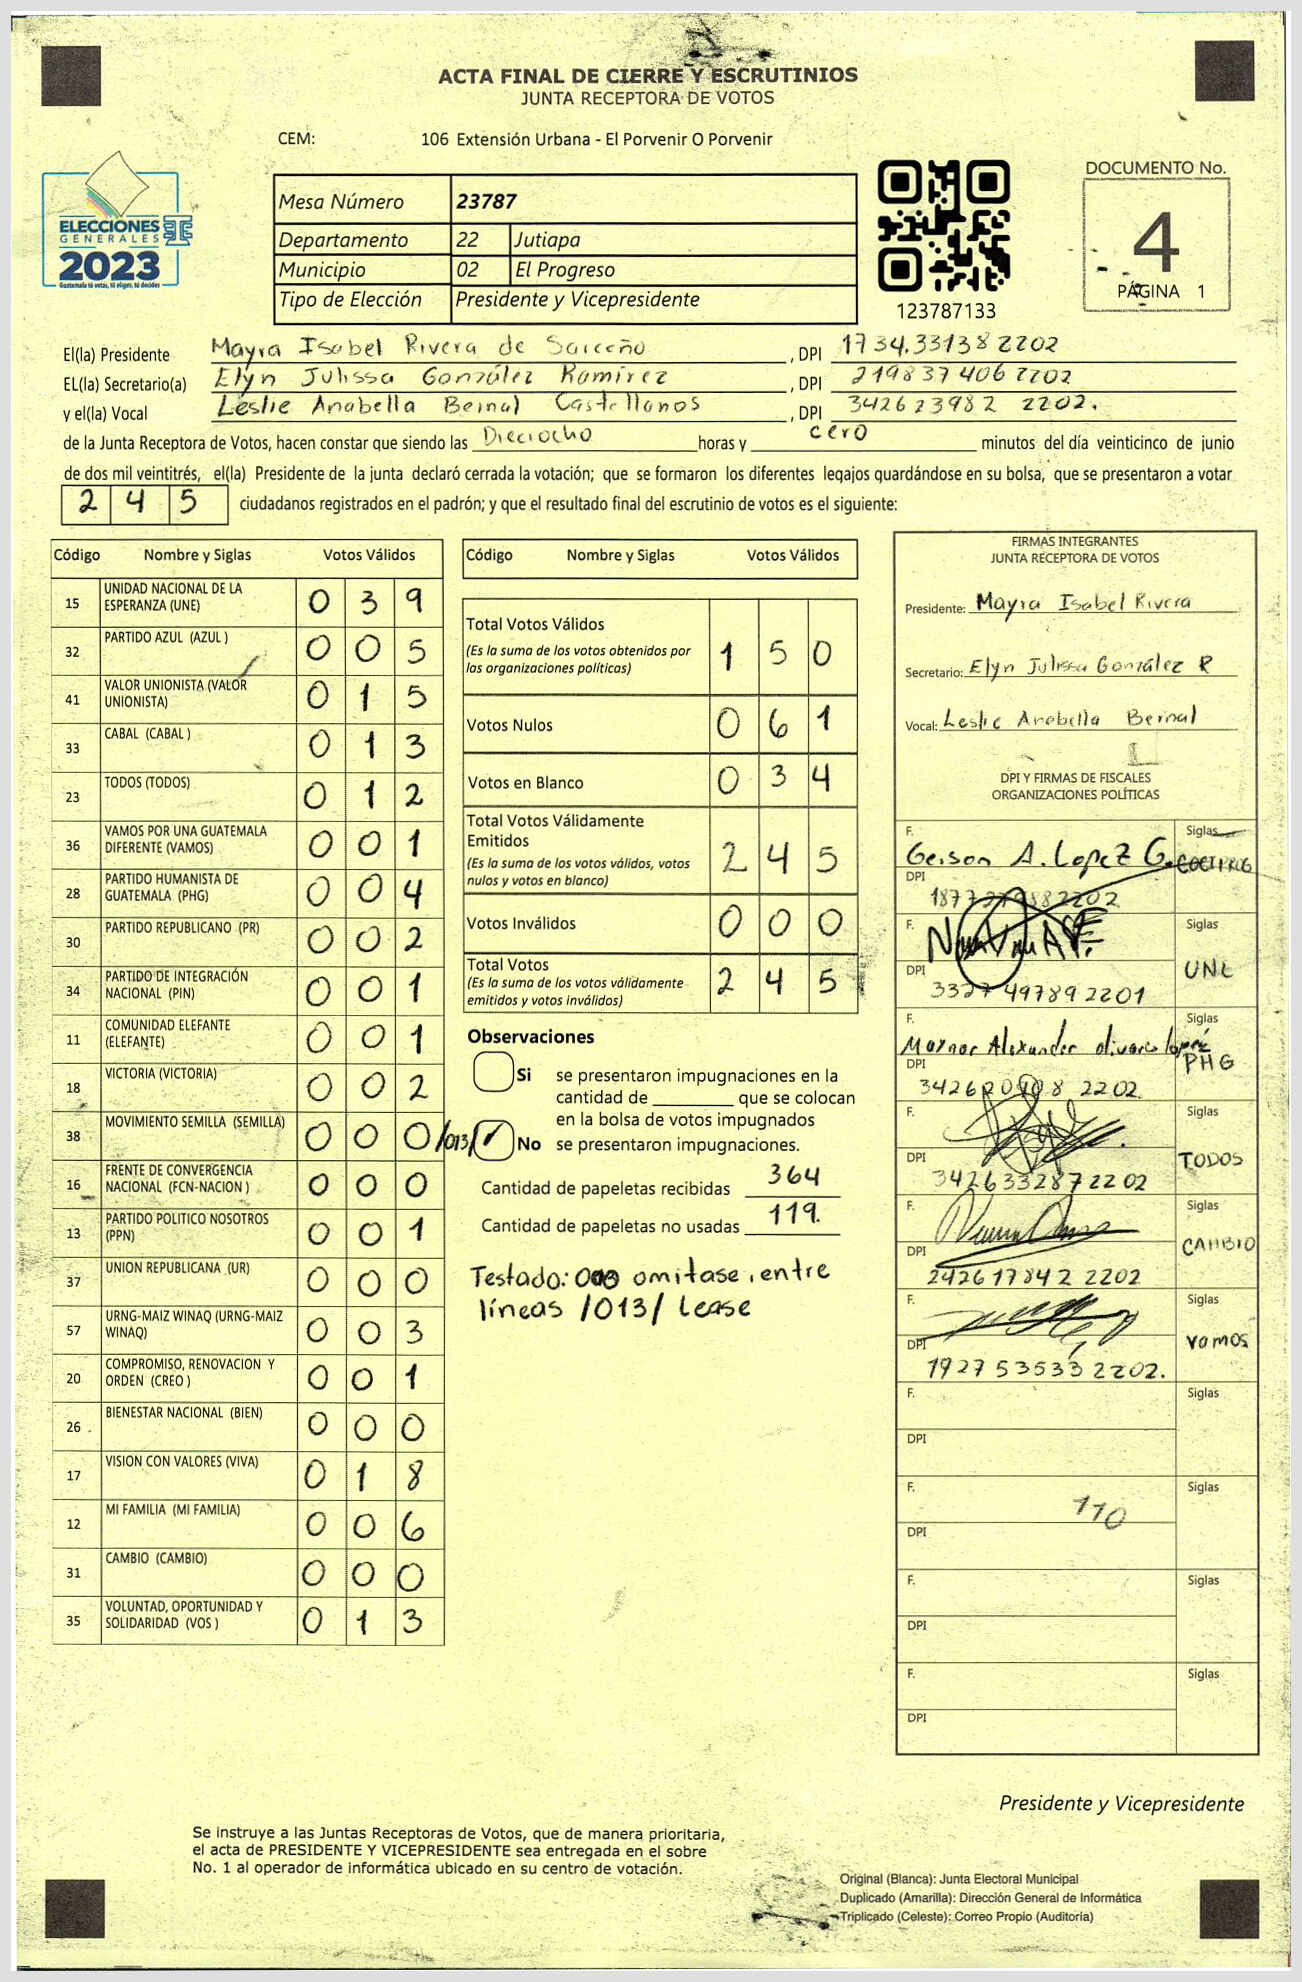 ACTA FINAL DE CIERRE Y ESCRUTINIOS
JUNTA RECEPTORA DE VOTOS
CEM: 106 Extensión Urbana - El Porvenir O Porvenir
ELECCIONES
GENERALES
2023
Guatemala tú votas, tú eliges, tú decides
Mesa Número 23787
Departamento 22 Jutiapa
Municipio 02 El Progreso
Tipo de Elección Presidente y Vicepresidente
123787133
DOCUMENTO No.
4
PÁGINA 1
El(la) Presidente Mayra Isabel Rivera de Sarceño, DPI 1734.33138 2202
EL(la) Secretario(a) Elyn Julissa González Ramírez, DPI 219837406 2202
y el(la) Vocal Leslie Anabella Bernal Castellanos, DPI 342623982 2202.
de la Junta Receptora de Votos, hacen constar que siendo las Dieciocho horas y cero minutos del día veinticinco de junio
de dos mil veintitrés, el(la) Presidente de la junta declaró cerrada la votación; que se formaron los diferentes legajos guardándose en su bolsa, que se presentaron a votar
2 4 5 ciudadanos registrados en el padrón; y que el resultado final del escrutinio de votos es el siguiente:
Código Nombre y Siglas Votos Válidos
15 UNIDAD NACIONAL DE LA ESPERANZA (UNE) 0 3 9
32 PARTIDO AZUL (AZUL ) 0 0 5
41 VALOR UNIONISTA (VALOR UNIONISTA) 0 1 5
33 CABAL (CABAL ) 0 1 3
23 TODOS (TODOS) 0 1 2
36 VAMOS POR UNA GUATEMALA DIFERENTE (VAMOS) 0 0 1
28 PARTIDO HUMANISTA DE GUATEMALA (PHG) 0 0 4
30 PARTIDO REPUBLICANO (PR) 0 0 2
34 PARTIDO DE INTEGRACIÓN NACIONAL (PIN) 0 0 1
11 COMUNIDAD ELEFANTE (ELEFANTE) 0 0 1
18 VICTORIA (VICTORIA) 0 0 2
38 MOVIMIENTO SEMILLA (SEMILLA) 0 0 0 /013/
16 FRENTE DE CONVERGENCIA NACIONAL (FCN-NACION ) 0 0 0
13 PARTIDO POLITICO NOSOTROS (PPN) 0 0 1
37 UNION REPUBLICANA (UR) 0 0 0
57 URNG-MAIZ WINAQ (URNG-MAIZ WINAQ) 0 0 3
20 COMPROMISO, RENOVACION Y ORDEN (CREO ) 0 0 1
26 BIENESTAR NACIONAL (BIEN) 0 0 0
17 VISION CON VALORES (VIVA) 0 1 8
12 MI FAMILIA (MI FAMILIA) 0 0 6
31 CAMBIO (CAMBIO) 0 0 0
35 VOLUNTAD, OPORTUNIDAD Y SOLIDARIDAD (VOS ) 0 1 3
Código Nombre y Siglas Votos Válidos
Total Votos Válidos 1 5 0
(Es la suma de los votos obtenidos por
las organizaciones políticas)
Votos Nulos 0 6 1
Votos en Blanco 0 3 4
Total Votos Válidamente
Emitidos 2 4 5
(Es la suma de los votos válidos, votos
nulos y votos en blanco)
Votos Inválidos 0 0 0
Total Votos 2 4 5
(Es la suma de los votos válidamente
emitidos y votos inválidos)
Observaciones
Si se presentaron impugnaciones en la
cantidad de ________ que se colocan
en la bolsa de votos impugnados
No se presentaron impugnaciones.
Cantidad de papeletas recibidas 364
Cantidad de papeletas no usadas 119.
Testado: 000 omitase, entre
líneas /013/ Lease
FIRMAS INTEGRANTES
JUNTA RECEPTORA DE VOTOS
Presidente: Mayra Isabel Rivera
Secretario: Elyn Julissa González R
Vocal: Leslie Anabella Bernal
DPI Y FIRMAS DE FISCALES
ORGANIZACIONES POLÍTICAS
F. Gerson A. Lopez G. Siglas
DPI 2202
F. Siglas UNE
DPI 3327 49789 2201
F. Maynor Alexander olivares lopez Siglas PHG
DPI 2202
F. Siglas TODOS
DPI 342633287 2202
F. Siglas CAMBIO
DPI 242617842 2202
F. Siglas VAMOS
DPI 1927 53533 2202.
F. Siglas
DPI
F. 110 Siglas
DPI
F. Siglas
DPI
F. Siglas
DPI
Presidente y Vicepresidente
Se instruye a las Juntas Receptoras de Votos, que de manera prioritaria,
el acta de PRESIDENTE Y VICEPRESIDENTE sea entregada en el sobre
No. 1 al operador de informática ubicado en su centro de votación.
Original (Blanca): Junta Electoral Municipal
Duplicado (Amarilla): Dirección General de Informática
Triplicado (Celeste): Correo Propio (Auditoria)